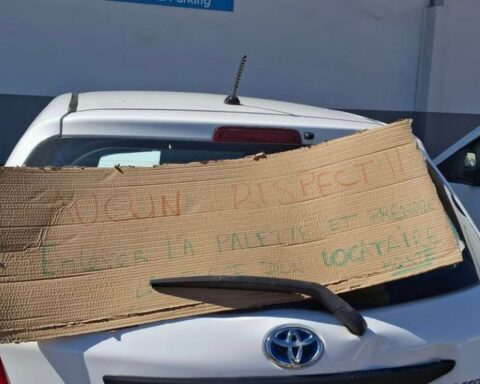 Parking
AUCUN RESPECT !!
Enlever LA PALETTE ET PRENDRE
LA PLACE DU LOCATAIRE